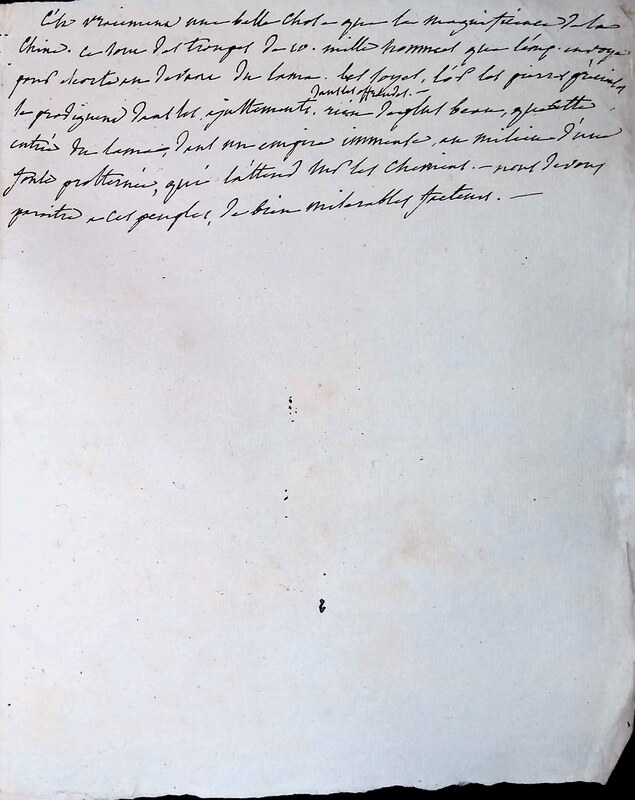 C'est vraiment une belle chose que la magnificence de la
Chine. ce sont des troupes de 10. mille hommes que l'emp. envoye
pour escorte au devant du lama. les soyes, l'or les pierres précieuses
se prodiguent dans les ajustements. dans les offrandes. — rien de plus beau, que cette
entrée du lama, dans un empire immense, au milieu d'une
foule prosternée, qui l'attend sur les chemins. — nous devons
paroitre a ces peuples, de bien miserables